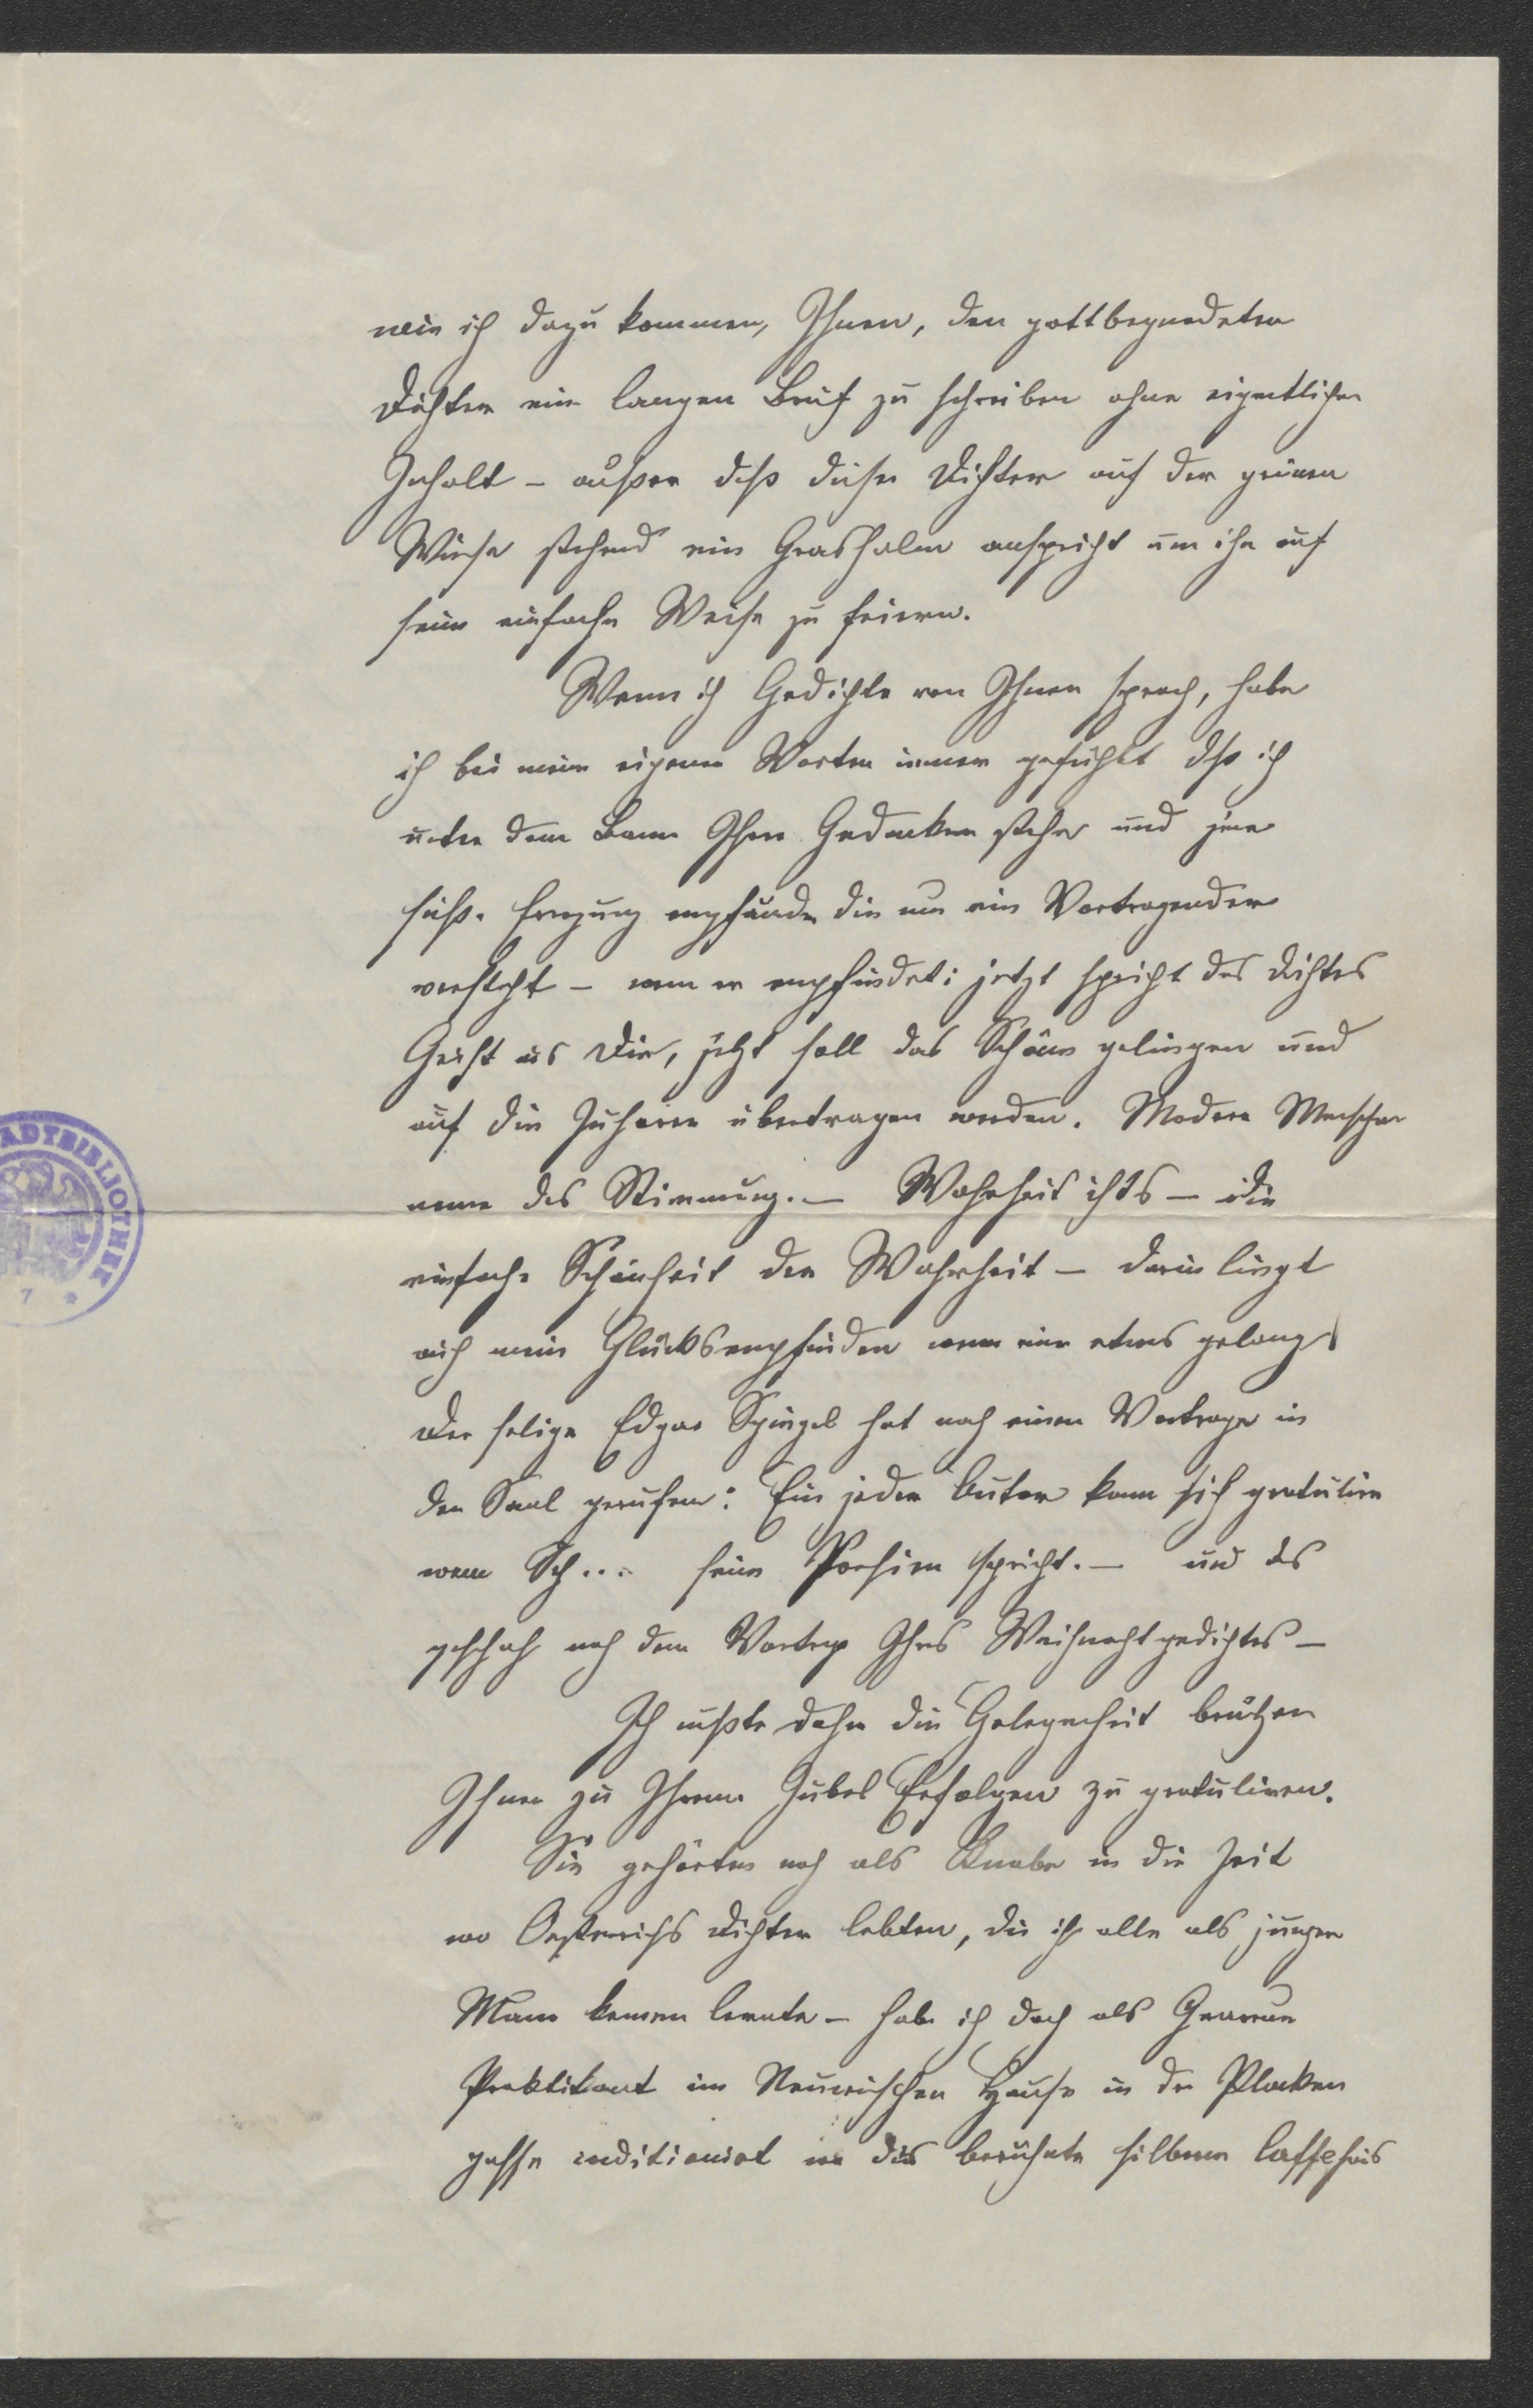 wie ich dazu kommen, Ihnen, den gottbegnadeten
Dichter ein langen Brief zu schreiben ohne eigentlichen
Inhalt – außer daß dieser Dichter auf der grünen
Wiese stehend ein Grashalm anspricht um ihn auf
seine einfache Weise zu feiern.
Wenn ich Gedichte von Ihnen sprach, habe
ich bei meinen eigenen Worten immer gefühlt daß ich
unter dem Bann Ihrer Gedanken stehe und jene
süße Erregung empfände die nur ein Vortragender
versteht – wenn er empfindet: jetzt spricht des Dichters
Geist aus Dir, jetzt soll das Schöne gelingen und
auf die Zuhörer übertragen werden. Moderne Menschen
nennen das Stimmung. – Wahrheit ists – die
einfache Schönheit der Wahrheit – darin liegt
auch mein Glücksempfinden wenn mir etwas gelang.
Der selige Edgar Spiegel hat nach einem Vortrage in
den Saal gerufen: Ein jeder Autor kann sich gratulieren
wenn Sch... seine Poesien spricht. – und das
geschah nach dem Vortrage Ihres Weihnachtgedichtes –
Ich mußte daher die Gelegenheit benützen
Ihnen zu Ihrem Jubel Erfolgen zu gratulieren.
Sie gehörten noch als Knabe in die Zeit
wo Oesterreichs Dichter lebten, die ich alle als junger
Mann kennen lernte – habe ich doch als Graveur
Praktikant im Neunerischen Hause in der Planken
gasse conditioniert wo das berühmte silberne Caffehaus